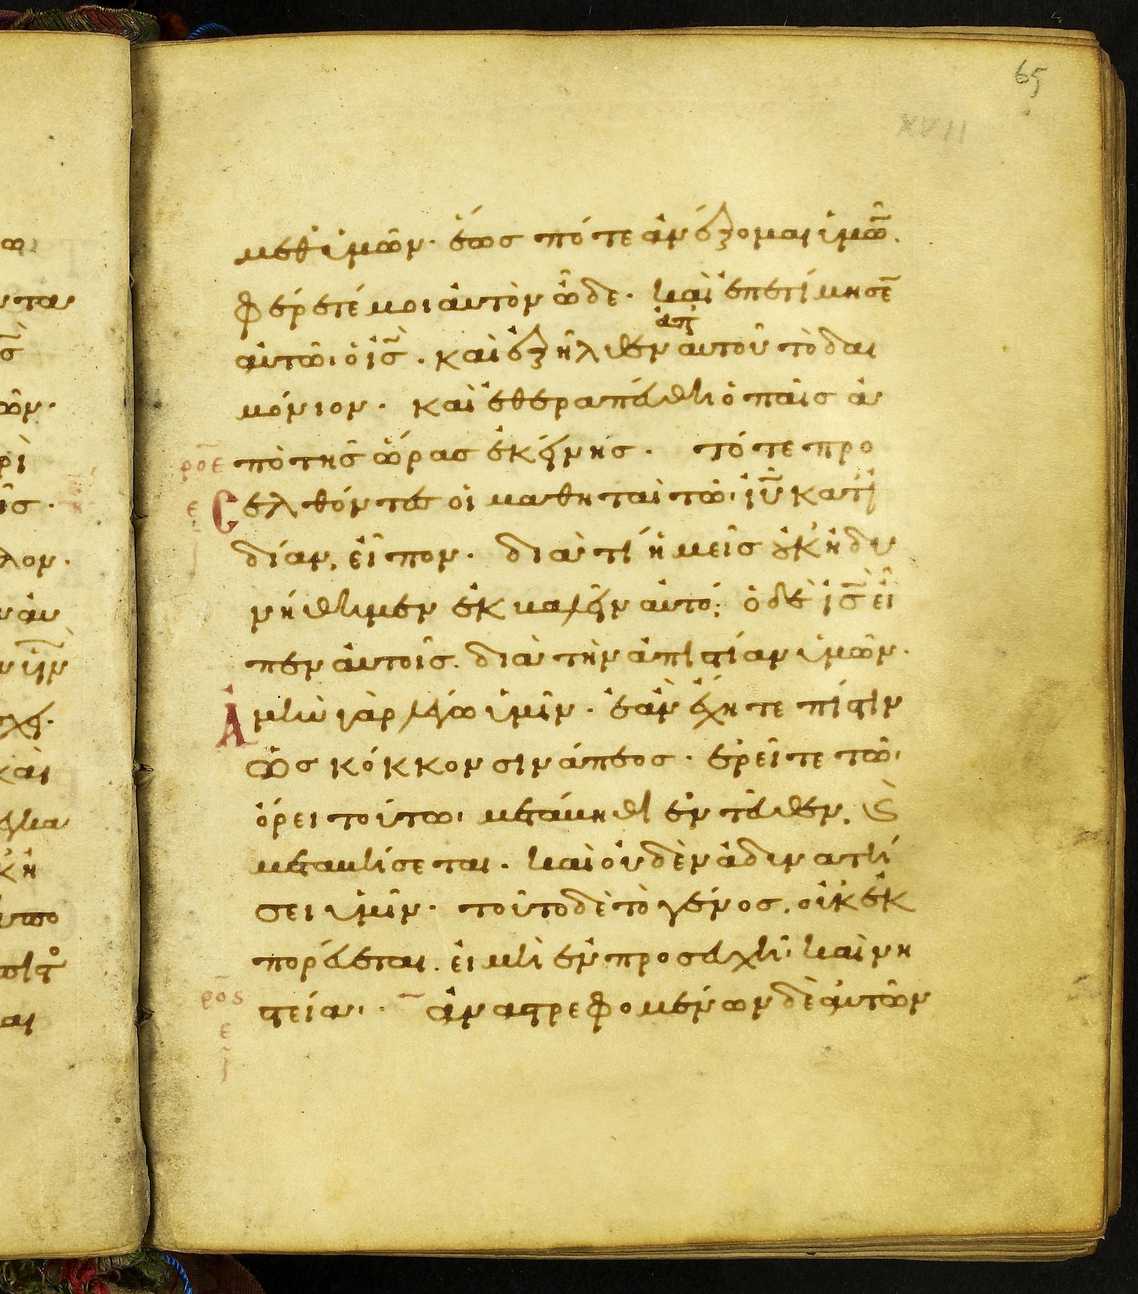 65
XVII
μεθ ὑμῶν· ἕως πότε ἀνέξομαι ὑμῶ̅.
φέρετέ μοι αὐτὸν ὧδε· καὶ ἐπετίμησε̅
αὐτῶ· ὁ ἰς̅. καὶ ἐξῆλθεν ἀπ αὐτοῦ τὸ δαι
μόνιον· καὶ ἐθεραπεύθη ὁ παῖς ἀ
ροε πὸ τῆς ὥρας ἐκείνης. τότε προ
ε
ι
Cελθόντες οἱ μαθηταὶ τῶ ἰυ̅ κατϊ
δίαν, εἶπον· διὰ τί ἡμεῖς οὐκ ἠδυ
νήθημεν ἐκβαλεῖν αὐτό; ὁ δὲ ἰς̅ εἶ
πεν αὐτοῖς. διὰ τὴν ἀπιστίαν ὑμῶν.
Ἀμὴν γὰρ λέγω ὑμῖν· ἐὰν ἔχητε πίστιν
ὡς κόκκον σινάπεος· ἐρεῖτε τῶ
ὄρει τούτω· μετάβηθι ἐντεῦθεν, ϗ
μεταβήσεται. καὶ οὐδὲν ἀδυνατή
σει ὑμῖν· τοῦτο δὲ τὸ γένος. οὐκ ἐκ
πορεύεται. εἰ μὴ ἐν προσευχῆ· καὶ νη
ροϛ στεία·. ἀναστρεφομένων δὲ αὐτῶν
ε
ι